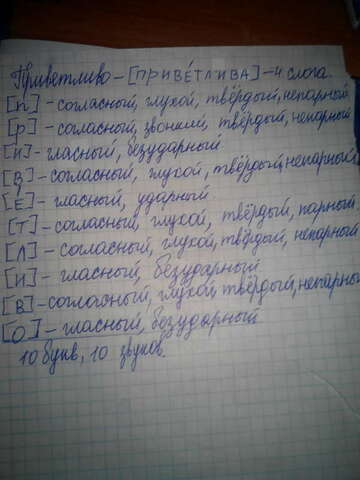 Приветливо-[ПРИВЕ́ТЛИВА]-4 слога.
[П]-согласный, глухой, твёрдый, непарный
[Р]-согласный, звонкий, твёрдый, непарный
[И]-гласный, безударный
[В]-согласный, глухой, твёрдый, непарный
[Е́]-гласный, ударный.
[Т]-согласный, глухой, твёрдый, парный
[Л]-согласный, глухой, твёрдый, непарный
[И]-гласный, безударный
[В]-согласный, глухой, твёрдый, непарны
[О]-гласный, безударный
10 букв, 10 звуков.